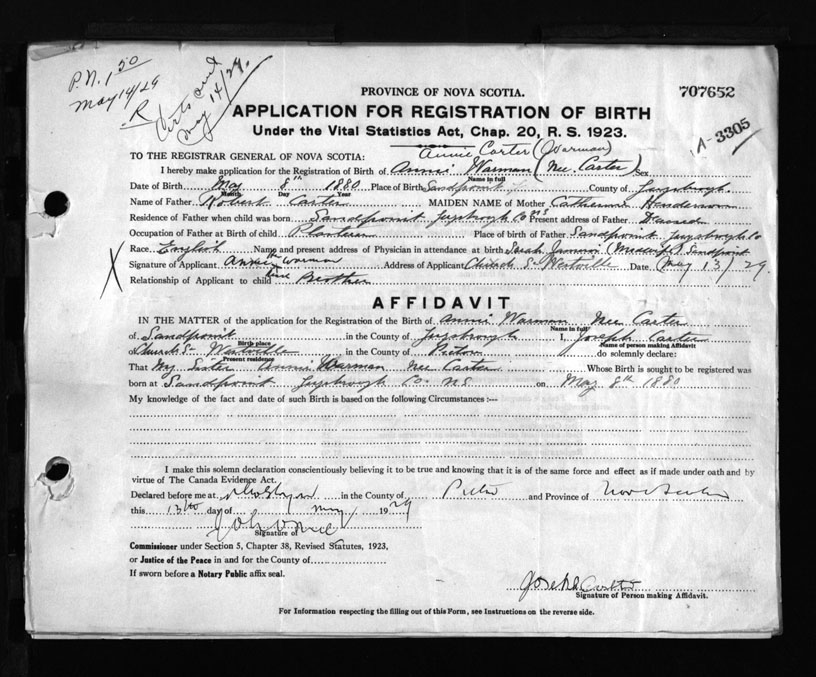 P.N. 1 50
May 14/29
R
Certs and
May 14/29.
PROVINCE OF NOVA SCOTIA.
707652
APPLICATION FOR REGISTRATION OF BIRTH
Under the Vital Statistics Act, Chap. 20, R. S. 1923.
A-3305
Annie Carter (Warman)
TO THE REGISTRAR GENERAL OF NOVA SCOTIA:
I hereby make application for the Registration of Birth of Annie Warman (Nee Carter) Sex
Name in full
Date of Birth May 8th 1880 Place of Birth Sandpoint County of Guysborogh
Month Day Year
Name of Father Robert Carter MAIDEN NAME of Mother Catherine Henderson
Residence of Father when child was born Sandpoint Guysborogh Co NS Present address of Father
Occupation of Father at Birth of child Place of birth of Father Sandpoint Guysborogh Co
Race English Name and present address of Physician in attendance at birth Sarah (Midwife) Sandpoint
X Signature of Applicant Annie Warman Address of Applicant Church St Westville Date May 13/29.
Relationship of Applicant to child Brother
AFFIDAVIT
IN THE MATTER of the application for the Registration of the Birth of Annie Warman Nee Carter
Name in full
of Sandpoint in the County of Guysborogh I, Joseph Carter
Birth place Name of person making Affidavit
Church St Westville in the County of Pictou do solemnly declare:
Present residence
That My Sister Annie Warman Nee Carter Whose Birth is sought to be registered was
born at Sandpoint Guysborogh Co. N.S. on May 8th 1880
My knowledge of the fact and date of such Birth is based on the following Circumstances :—
I make this solemn declaration conscientiously believing it to be true and knowing that it is of the same force and effect as if made under oath and by
virtue of The Canada Evidence Act.
Declared before me at in the County of Pictou and Province of Nova Scotia
this 13th day of May 1929
Signature of
Commissioner under Section 5, Chapter 38, Revised Statutes, 1923,
or Justice of the Peace in and for the County of
If sworn before a Notary Public affix seal.
Joseph Carter
Signature of Person making Affidavit.
For Information respecting the filling out of this Form, see Instructions on the reverse side.